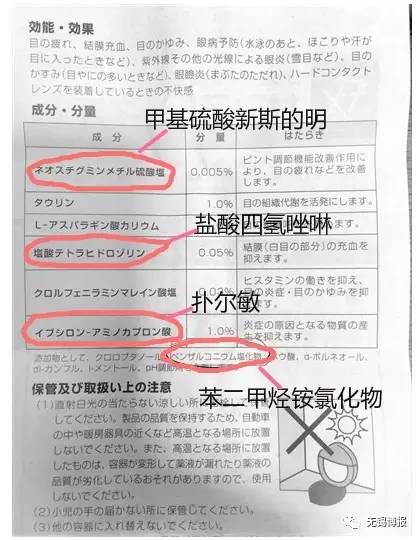 効能・効果
目の疲れ、結膜充血、目のかゆみ、眼病予防(水泳のあと、ほこりや汗が
目に入ったときなど)、紫外線その他の光線による眼炎(雪目など)、目の
かすみ(目やにの多いときなど)、眼瞼炎(まぶたのただれ)、ハードコンタクト
レンズを装着しているときの不快感
成分・分量
甲基硫酸新斯的明
成分 分量 はたらき
ネオスチグミンメチル硫酸塩 0.005% ピント調節機能改善作用に
より、目の疲れなどを改善
します。
タウリン 1.0% 目の組織代謝を活発にします。
L-アスパラギン酸カリウム
盐酸四氢唑啉
塩酸テトラヒドロゾリン 0.05% 結膜(白目の部分)の充血を
抑えます。
クロルフェニラミンマレイン酸塩 ヒスタミンの働きを抑え、
目の炎症・目のかゆみを抑
えます。
扑尔敏
イプシロン-アミノカプロン酸 1.0% 炎症の原因となる物質の産
生を抑えます。
添加物として、クロロブタノール、ベンザルコニウム塩化物、ホウ酸、d-ボルネオール、
dl-カンフル、l-メントール、pH調節剤
苯二甲烃铵氯化物
保管及び取扱い上の注意
(1)直射日光の当たらない涼しい所に
してください。製品の品質を保持するため、自動車
の中や暖房器具の近くなど高温となる場所に放置
しないでください。また、高温となる場所に放置
したものは、容器が変形して薬液が漏れたり薬液の
品質が劣化しているおそれがありますので、使用
しないでください。
(2)小児の手の届かない所に保管してください。
(3)他の容器に入れ替えないでください。
无锡博报